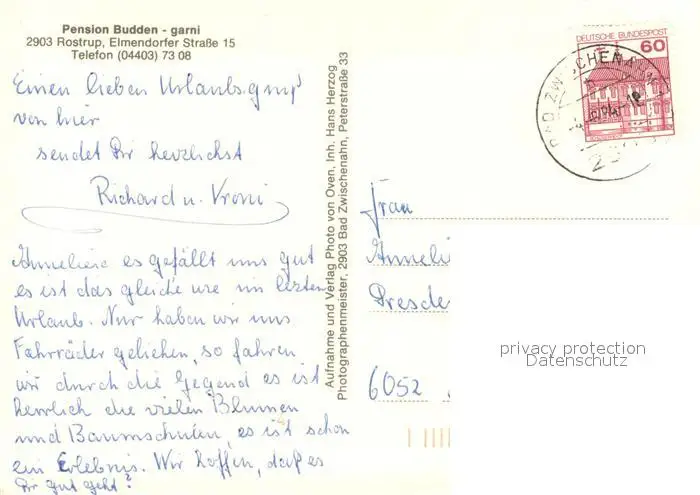 Pension Budden - garni
2903 Rostrup, Elmendorfer Straße 15
Telefon (04403) 73 08
Einen lieben Urlaubsgruß
von hier
sendet Dir herzlichst
Richard u. Vroni
Anneliese es gefällt uns gut
es ist das gleiche wie im letzten
Urlaub. Nur haben wir uns
Fahrräder geliehen, so fahren
wir durch die Gegend es ist
herrlich die vielen Blumen
und Baumschulen, es ist schon
ein Erlebnis. Wir hoffen, daß es
Dir gut geht?
Aufnahme und Verlag Photo von Oven, Inh. Hans Herzog
Photographenmeister, 2903 Bad Zwischenahn, Peterstraße 33
DEUTSCHE BUNDESPOST
60
BAD ZWISCHENAHN
Frau
Anneli
Dresde
6052
privacy protection
Datenschutz